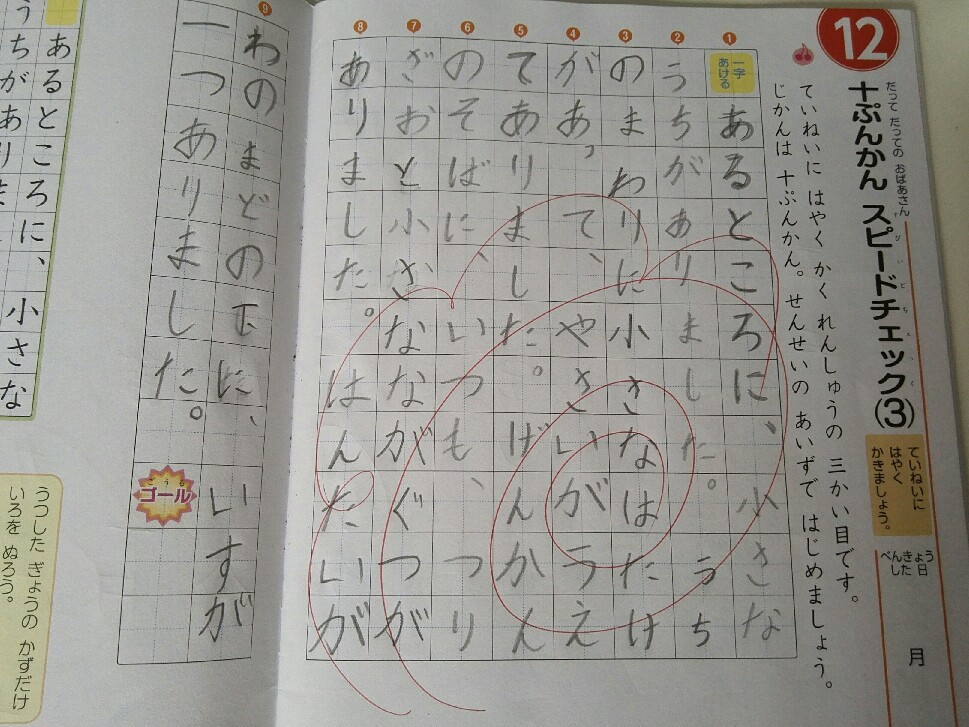 12
だって だっての おばあさん
十ぷんかん スピードチェック(3)
すぴいどちぇっく
ていねいに
はやく
かきましょう。
べんきょう
した日
月
ていねいに はやく かく れんしゅうの 三かい目です。
じかんは 十ぷんかん。せんせいの あいずで はじめましょう。
1
一字
あける
あるところに、小さな
2
うちがありました。うち
3
のまわりに小さなはたけ
4
があって、やさいがうえ
5
てありました。げんかん
6
のそばに、いつも、つり
7
ざおと小さなながぐつが
8
ありました。はんたいが
9
わのまどの下に、いすが
一つありました。
ごうる
ゴール
あるところに、小さな
うちがあり
うつした ぎょうの かずだけ
いろを ぬろう。